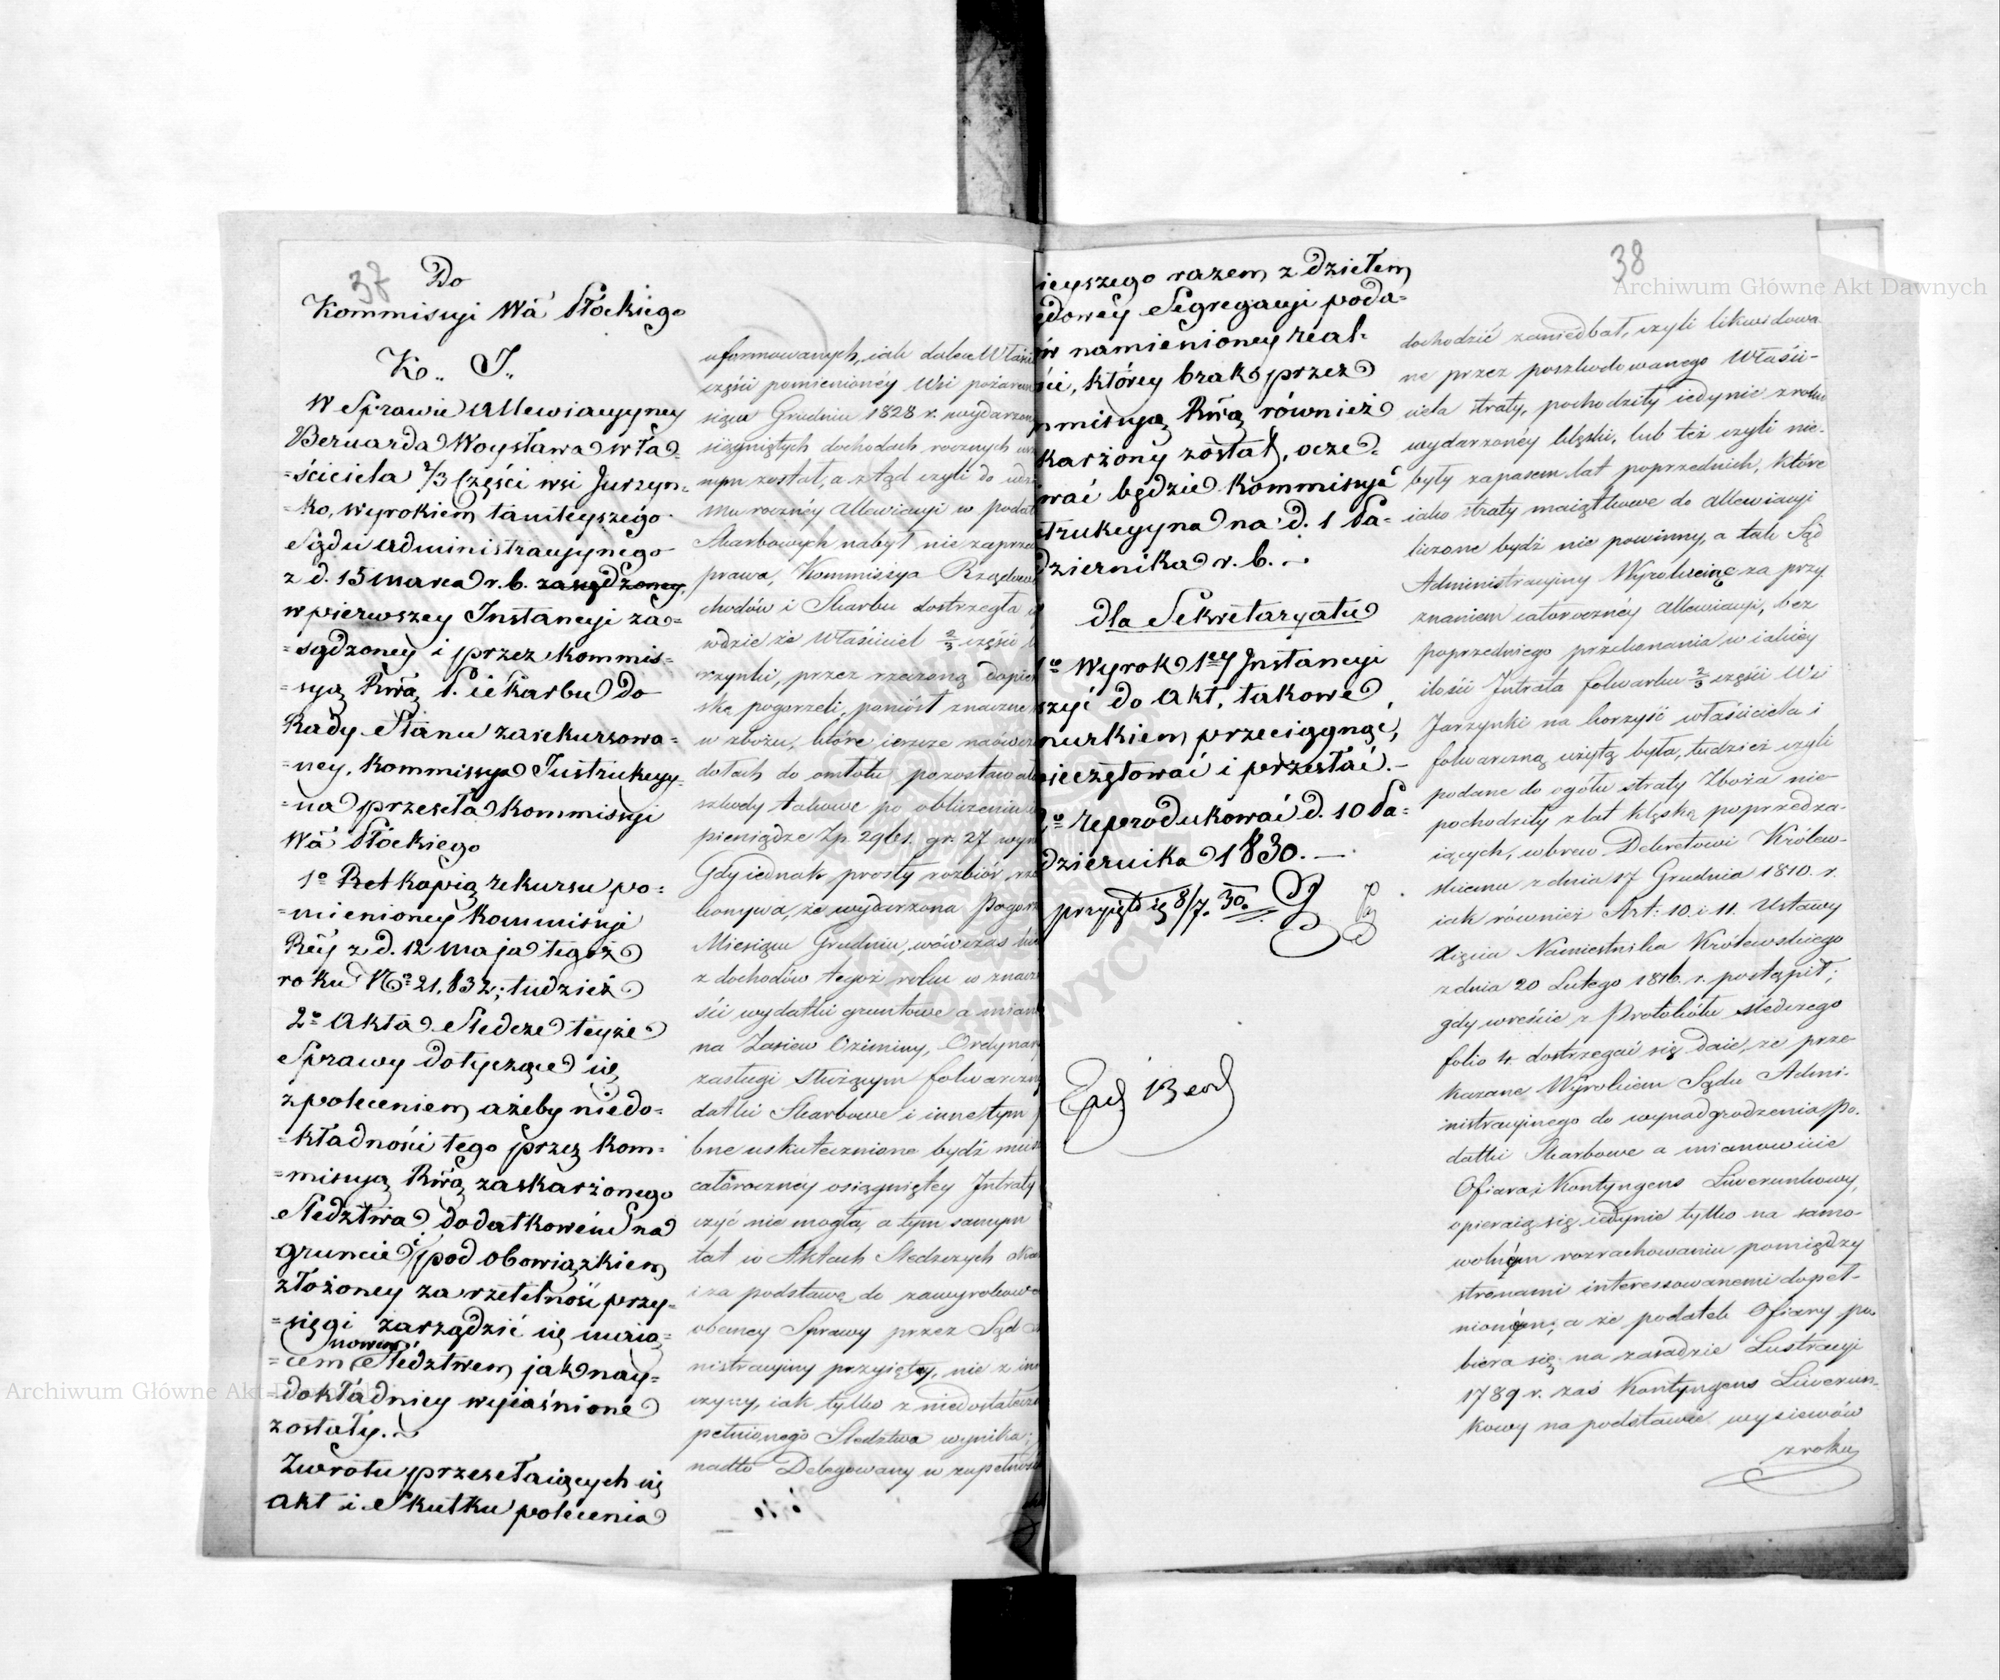 37
Do
Kommissyi Wa Płockiego
K.. J..
W Sprawie Allewiacyyney
Bernarda Woysława wła=
=ściciela 2/3 Części wsi Jurzyn=
=ko, wyrokiem tamteyszego
Sądu Administracyynego
z d. 15 Marca r. b. zasądzoney,
w pierwszey Instancyi za=
=sądzoney i przez Kommis=
=syą Rwą P. i Skarbu do
Rady Stanu zarekursowa=
=ney, Kommissya Instrukcyy=
=na przeseła Kommissyi
Wa Płockiego
1o Ret kopią rekursu po=
=mienioney Kommissyi
Rey z d. 12 Maja tegoż
roku No 21.832; tudzież
2o Akta Sledcze teyże
Sprawy dotyczące się
z poleceniem ażeby niedo=
=kładności tego przez Kom=
=missyą Rwą zaskarżonego
Sledztwa, dodatkowém na
gruncie i pod obowiązkiem
złożoney za rzetelność przy=
=sięgi zarządzić się maią=
nowém
=cem Sledztwem jak nay=
=dokładniey wyiaśnione
zostały.
Zwrotu przesełaiących się
akt i Skutku polecenia
uformowanych, iak dalece Właści
części pomienioney Wsi pożarem
siąca Grudniu 1828 r. wydarzon
siągniętych dochodach rocznych
nym został, a ztąd czyli do
mu roczney Allewiacyi w podat
Skarbowych nabył nie zaprze
prawa, Kommissya Rządowa
chodów i Skarbu dostrzegła
wdzie że Właściciel 2/3 części
rzynki, przez rzeczoną dopie
ską pogorzeli, poniósł znaczne
w zbożu, które ieszcze naówcz
dołach do omłotu pozostawał
szkody takowe po obliczeniu
pieniądze Zp. 2961. gr. 27 wyn
Gdy iednak prosty rozbiór, rze
konywa, że wydarzona Pogorz
Miesiącu Grudniu, wówczas
z dochodów tegoż roku w znacz
ści wydatki gruntowe a miano
na Zasiew Oziminy, Ordynar
zasługi Służącym folwarczny
datki Skarbowe i inne tym
bne uskutecznione bydź mus
całoroczney osiągniętey Intraty
czyć nie mogła, a tym samym
tat w Aktach Sledczych
i za podstawę do zawyrokowa
obecney Sprawy przez Sąd
nistracyiny przyięty, nie z in
czyny, iak tylko z niedostatecz
pełnionego Sledztwa wynika;
nadto Delegowany w zupełnoś
38
ieyszego razem z dziełem
dowey Segregacyi poda=
ów namienioney real=
ści, którey brak przez
mmissyą Rwą również
karżony został, ocze=
wać będzie Kommissya
trukcyyna na d. 1 Pa=
dziernika r. b.
dla Sekretaryatu
1o Wyrok 1ey Instancyi
szyć do Akt, takowe
nurkiem przeciągnąć,
ieczętować i przesłać.
2o Reprodukować d. 10 Pa=
dziernika 1830.
przyięto ią 8/7. 30.
dochodzić zaniedbał, czyli likwidowa
ne przez poszkodowanego Właści-
ciela straty, pochodziły iedynie z roku
wydarzoney klęski, lub też czyli nie
były zapasem lat poprzednich, które
iako straty maiątkowe do Allewiacyi
liczone bydź nie powinny, a tak Sąd
Administracyiny Wyrokuiąc za przy
znaniem całoroczney Allewiacyi, bez
poprzedniego przekonania w iakiey
ilości Intrata folwarku 2/3 części Wsi
Jarzynki na korzyść właściciela i
folwarczną użytą była, tudzież czyli
podane do ogółu straty Zboża nie
pochodziły z lat klęskę poprzedza-
iących, wbrew Dekretowi Królew-
skiemu z dnia 17 Grudnia 1810. r.
iak również Art: 10. i 11. Ustawy
Xięcia Namiestnika Królewskiego
z dnia 20 Lutego 1816. r. postąpił;
gdy wreście z Protokółu śledczego
folio 4. dostrzegać się daie, że prze-
kazane Wyrokiem Sądu Admi-
nistracyinego do wynadgrodzenia Po-
datki Skarbowe a mianowicie
Ofiara i Kontyngens Liwerunkowy,
opieraią się iedynie tylko na samo-
wolném rozrachowaniu pomiędzy
stronami interessowanemi dopeł-
nioném, a że podatek Ofiary po-
biera się na zasadzie Lustracyi
1789 r. zaś Kontyngens Liwerun-
kowy na podstawie wysiewów
z roku
Archiwum Główne Akt Dawnych
Archiwum Główne Akt Dawnych